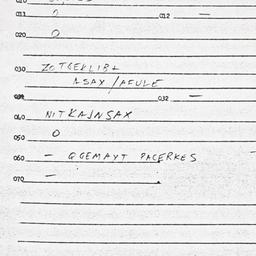 011 0 012 —
020 0
030 ZOTGEKLIBL
ASAX/AFULE
032 —
040 NITKAJNSAX
050 0
060 — QGEMAYT PACERKES
070 —